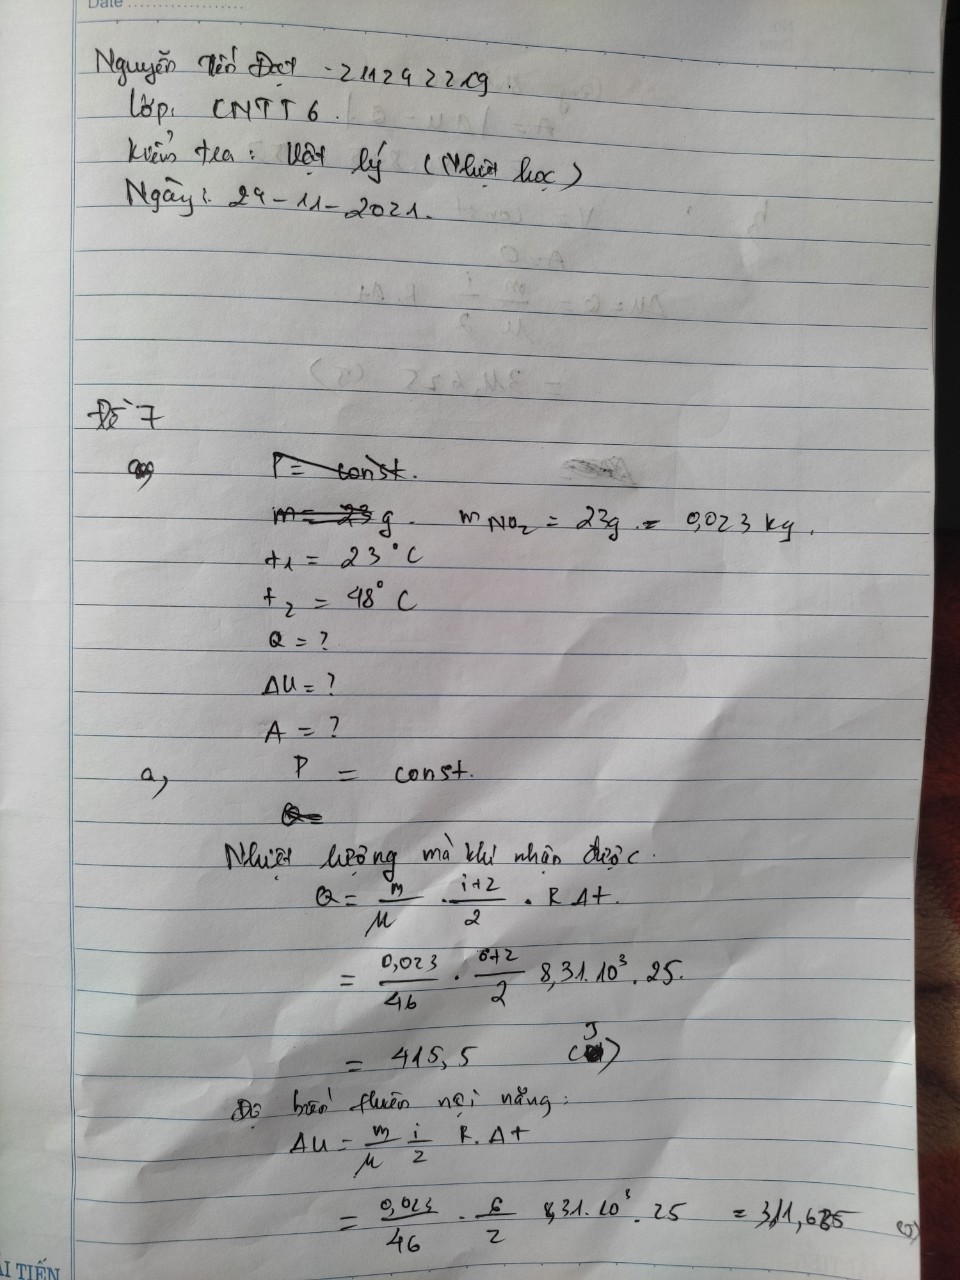 Date
Nguyễn Tiến Đạt - 211242219.
Lớp: CNTT6.
Kiểm tra: Vật lý (Nhiệt học)
Ngày: 29-11-2021.
Đề 7
P = const.
m = 23 g. m NO₂ = 23g. = 0,023 kg.
t₁ = 23°C
t₂ = 48°C
Q = ?
ΔU = ?
A = ?
a, P = const.
Q=
Nhiệt lượng mà khí nhận được.
Q = m/μ . i+2/2 . R Δt.
= 0,023/46 . 6+2/2 8,31.10³.25.
= 415,5 (J)
Độ biến thiên nội năng:
ΔU = m/μ i/2 R.Δt
= 0,023/46 . 6/2 8,31.10³.25 = 311,625 (J)
ẢI TIẾN